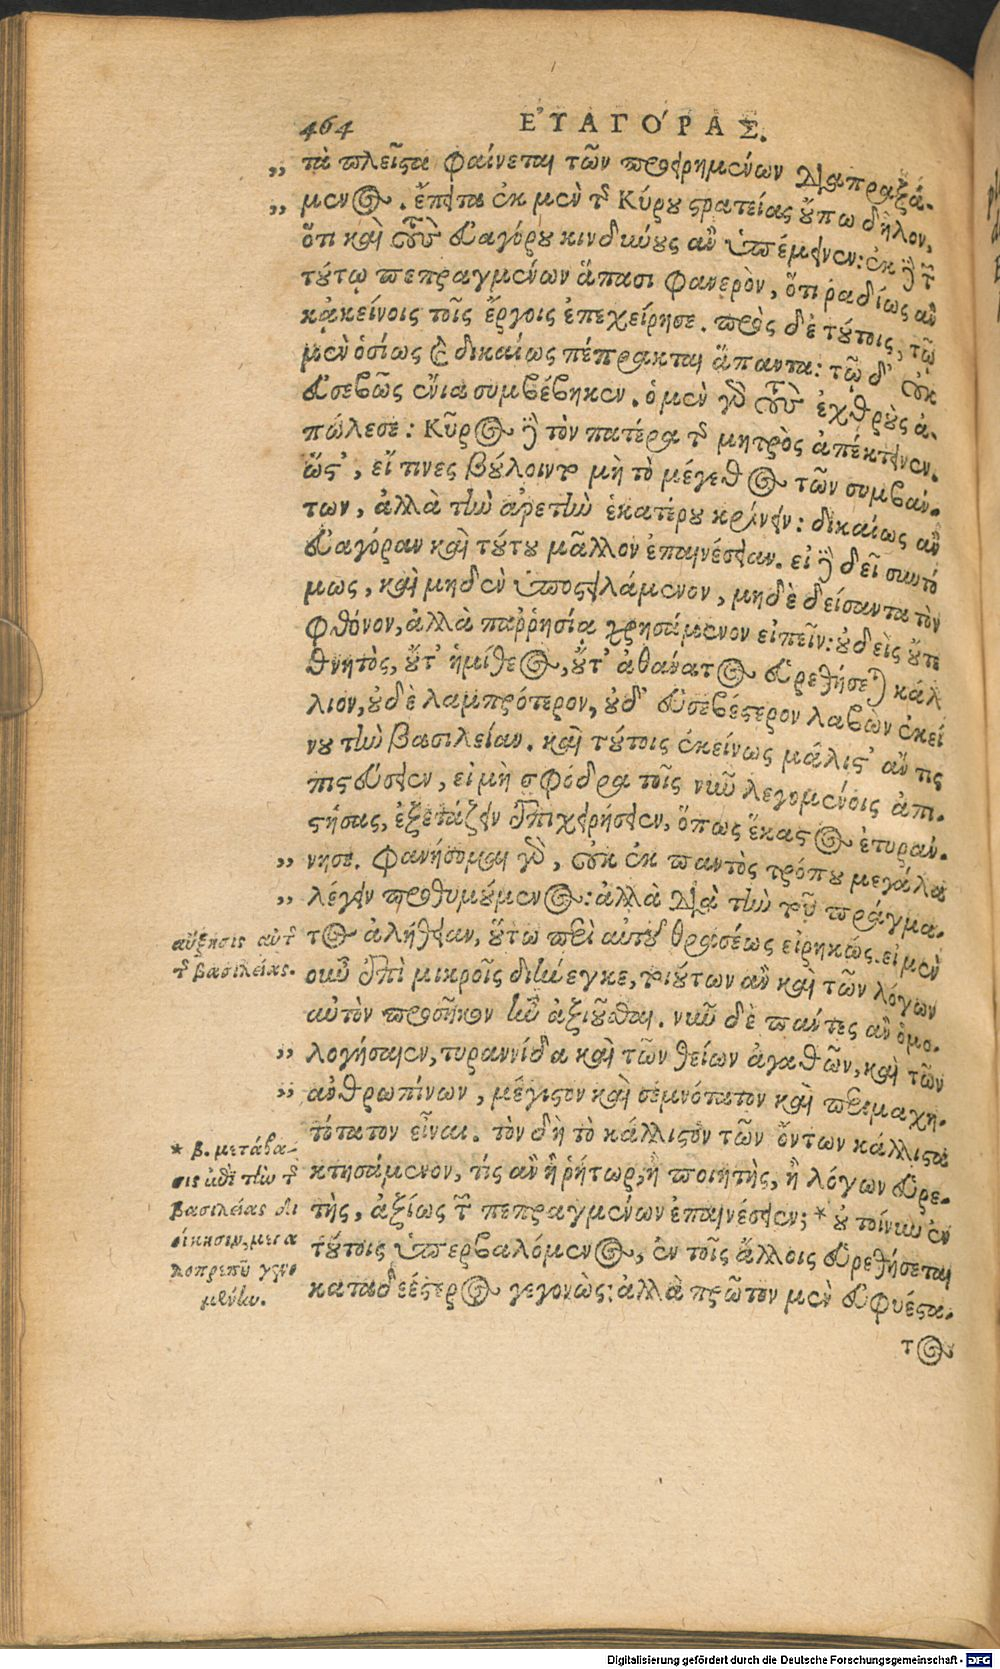 464 ΕΥ̓ΑΓΌΡΑΣ.
„ τὰ πλεῖστα φαίνεται τῶν προειρημένων διαπραξά-
„ μενος. ἔπειτα ἐκ μὲν τῆς Κύρου στρατείας οὔπω δῆλον,
ὅτι καὶ τοὺς Εὐαγόρου κινδύνους ἂν ὑπέμεινεν: ἐκ δὲ τῶν
τούτῳ πεπραγμένων ἅπασι φανερὸν, ὅτι ῥαδίως ἂν
κἀκείνοις τοῖς ἔργοις ἐπεχείρησε. πρὸς δὲ τούτοις, τῷ
μὲν ὁσίως καὶ δικαίως πέπρακται ἅπαντα: τῷ δ' οὐκ
εὐσεβῶς ἔνια συμβέβηκεν. ὁ μὲν γὰρ τοὺς ἐχθροὺς ἀ-
πώλεσε: Κῦρος δὲ τὸν πατέρα τῆς μητρὸς ἀπέκτεινεν.
ὥστ', εἴ τινες βούλοιντο μὴ τὸ μέγεθος τῶν συμβάν-
των, ἀλλὰ τὴν ἀρετὴν ἑκατέρου κρίνειν: δικαίως ἂν
Εὐαγόραν καὶ τούτου μᾶλλον ἐπαινέσειαν. εἰ δὲ δεῖ συντό
μως, καὶ μηδὲν ὑποστειλάμενον, μηδὲ δείσαντα τὸν
φθόνον, ἀλλὰ παῤῥησίᾳ χρησάμενον εἰπεῖν: οὐδεὶς οὔτε
θνητὸς, οὔτ' ἡμίθεος, οὔτ' ἀθάνατος εὑρεθήσεται κάλ
λιον, οὐδὲ λαμπρότερον, οὐδ' εὐσεβέστερον λαβὼν ἐκεί
νου τὴν βασιλείαν. καὶ τούτοις ἐκείνως μάλιστ' ἄν τις
πιστεύσειεν, εἰ μὴ σφόδρα τοῖς νῦν λεγομένοις ἀπι-
στήσας, ἐξετάζειν ἐπιχειρήσειεν, ὅπως ἕκαστος ἐτυράν-
„ νησε. φανήσομαι γὰρ, οὐκ ἐκ παντὸς τρόπου μεγάλα
„ λέγειν προθυμούμενος: ἀλλὰ διὰ τὴν τοῦ πράγμα-
τος ἀλήθειαν, οὕτω περὶ αὐτοῦ θρασέως εἰρηκώς. εἰ μὲν
οὖν ἐπὶ μικροῖς διήνεγκε, τοιούτων ἂν καὶ τῶν λόγων
αὐτὸν προσῆκον ἦν ἀξιοῦσθαι. νῦν δὲ πάντες ἂν ὁμο-
„ λογήσαιεν, τυραννίδα καὶ τῶν θείων ἀγαθῶν, καὶ τῶν
„ ἀνθρωπίνων, μέγιστον καὶ σεμνότατον καὶ περιμαχη-
τότατον εἶναι. τὸν δὴ τὸ κάλλιστον τῶν ὄντων κάλλιστα
κτησάμενον, τίς ἂν ἢ ῥήτωρ, ἢ ποιητὴς, ἢ λόγων εὑρε-
τὴς, ἀξίως τῶν πεπραγμένων ἐπαινέσειεν; * οὐ τοίνυν ἐν
τούτοις ὑπερβαλόμενος, ἐν τοῖς ἄλλοις εὑρεθήσεται
καταδεέστερος γεγονώς: ἀλλὰ πρῶτον μὲν εὐφυέστα-
τος
αὔξησις αὐτῆς
τῆς βασιλείας.
* β. μετάβα-
σις ἐπὶ τὴν τῆς
βασιλείας δι
οίκησιν, μεγα
λοπρεπῶς γενο
μένην.
Digitalisierung gefördert durch die Deutsche Forschungsgemeinschaft - DFG